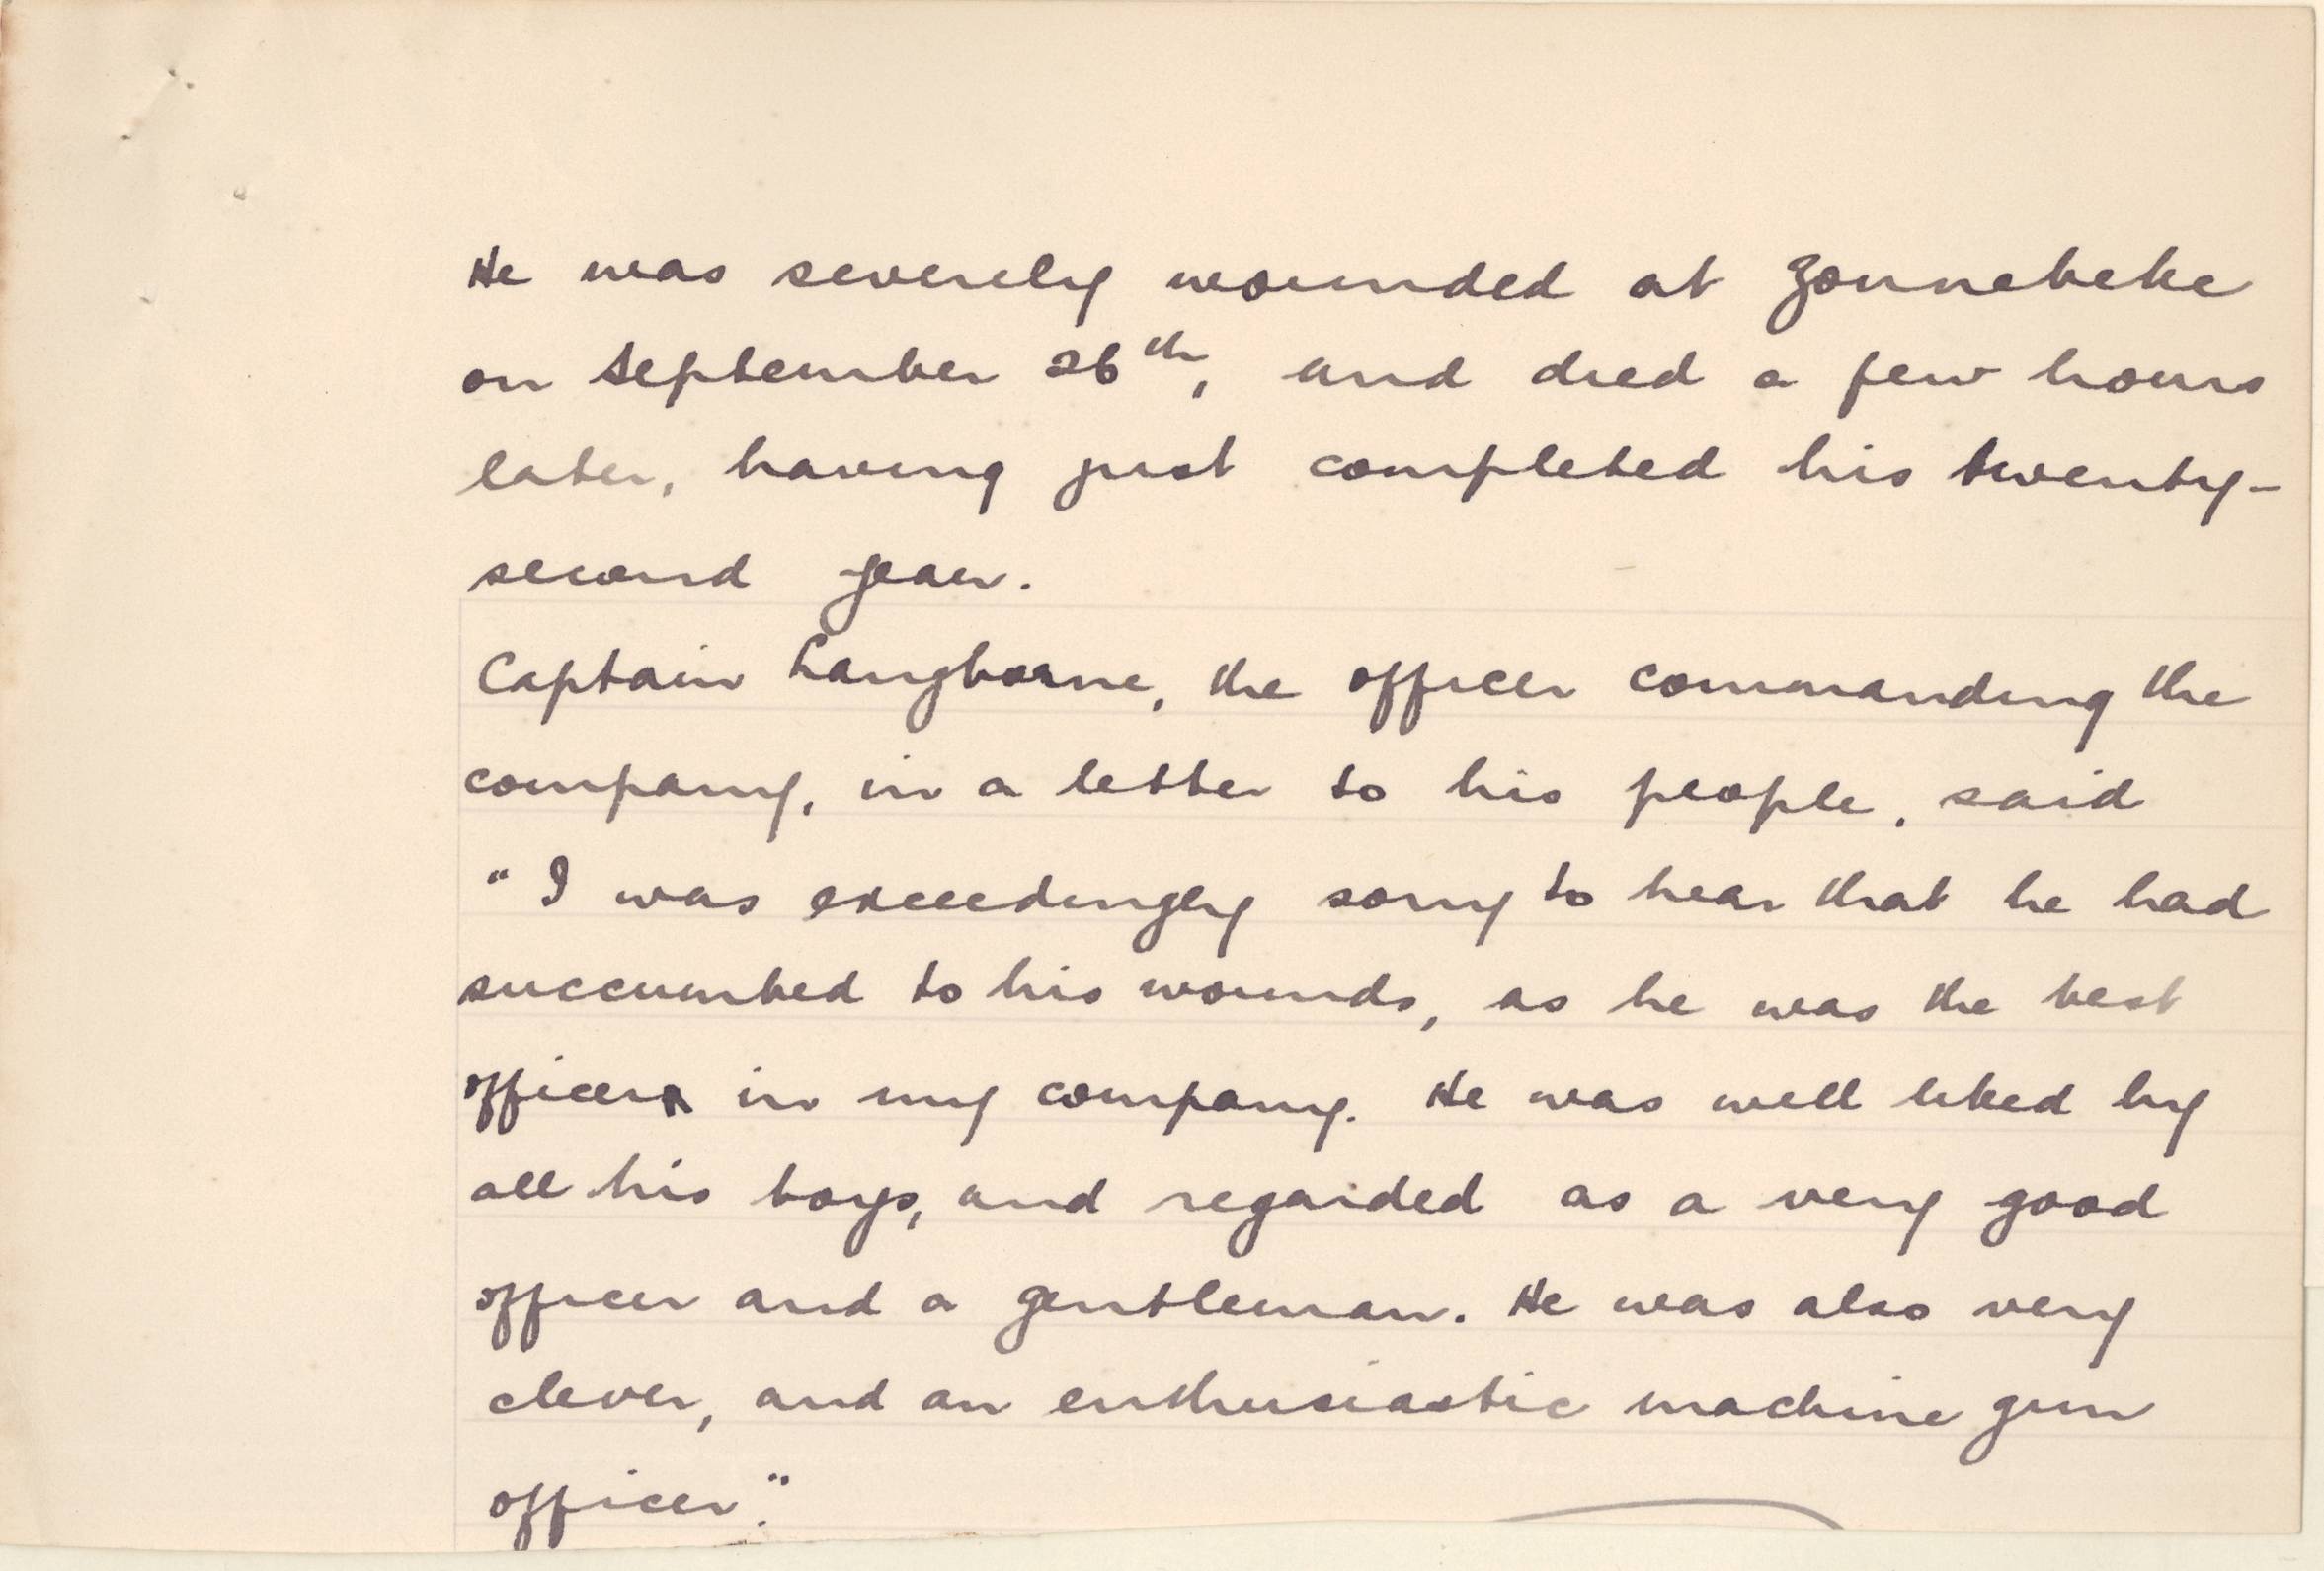 He was severely wounded at Zonnebeke
on September 26th, and died a few hours
later, having just completed his twenty-
second year.
Captain Langborne, the officer commanding the
company, in a letter to his people, said
"I was exceedingly sorry to hear that he had
succumbed to his wounds, as he was the best
officer in my company. He was well liked by
all his boys, and regarded as a very good
officer and a gentleman. He was also very
clever, and an enthusiastic machine gun
officer."